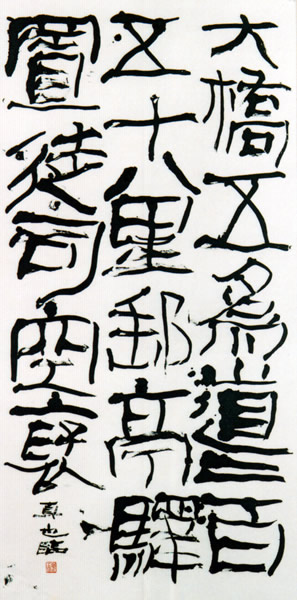 大橋五為道二百
五十八里郵亭驛
置徒司空褒
真也臨